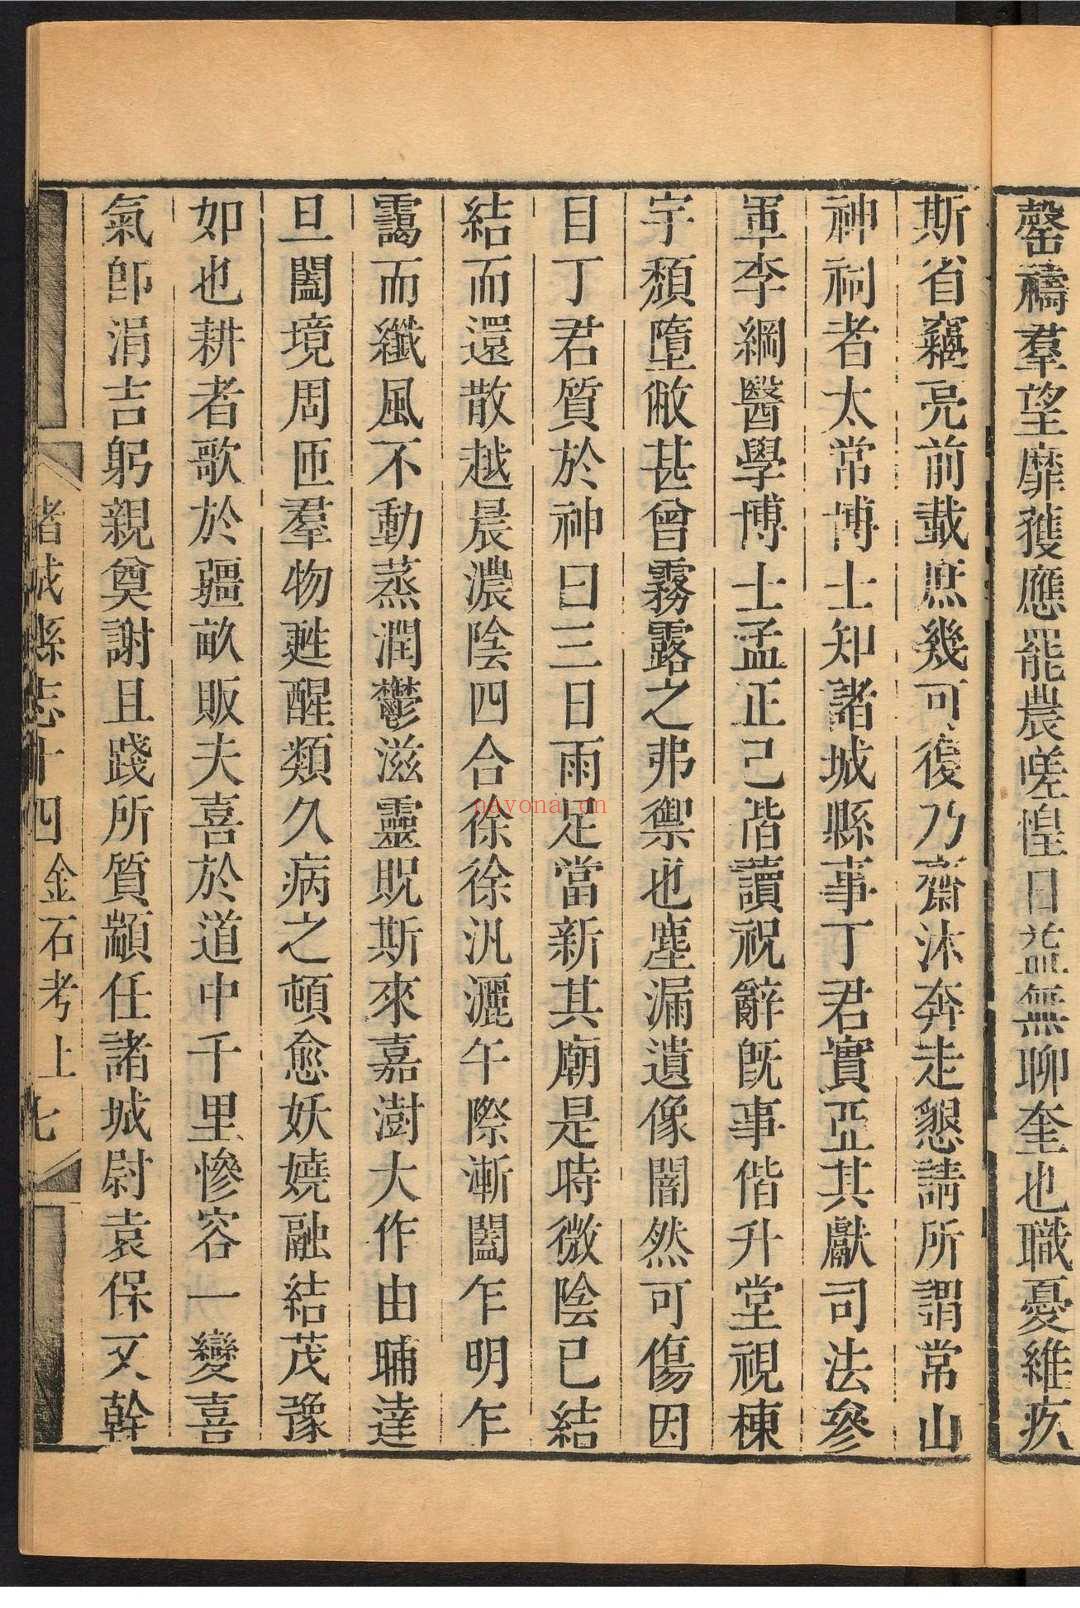 罄禱羣望靡獲應罷農嗟惶日益無聊奎也職憂維疚
斯省竊亮前載庶幾可復乃齋沐奔走懇請所謂常山
神祠者太常博士知諸城縣事丁君實亞其獻司法參
軍李綱醫學博士孟正己偕讀祝辭旣事偕升堂視棟
宇頹墮敝甚曾霧露之弗禦也塵漏遺像闇然可傷因
目丁君質於神曰三日雨足當新其廟是時微陰已結
結而還散越晨濃陰四合徐徐汎灑午際漸闔乍明乍
靄而纖風不動蒸潤鬱滋靈貺斯來嘉澍大作由晡達
旦闔境周匝羣物甦醒類久病之頓愈妖嬈融結茂豫
如也耕者歌於疆畝販夫喜於道中千里慘容一變喜
氣卽涓吉躬親奠謝且踐所質顓任諸城尉袁保乂幹
諸城縣志十四 金石考上 七
nayona.cn